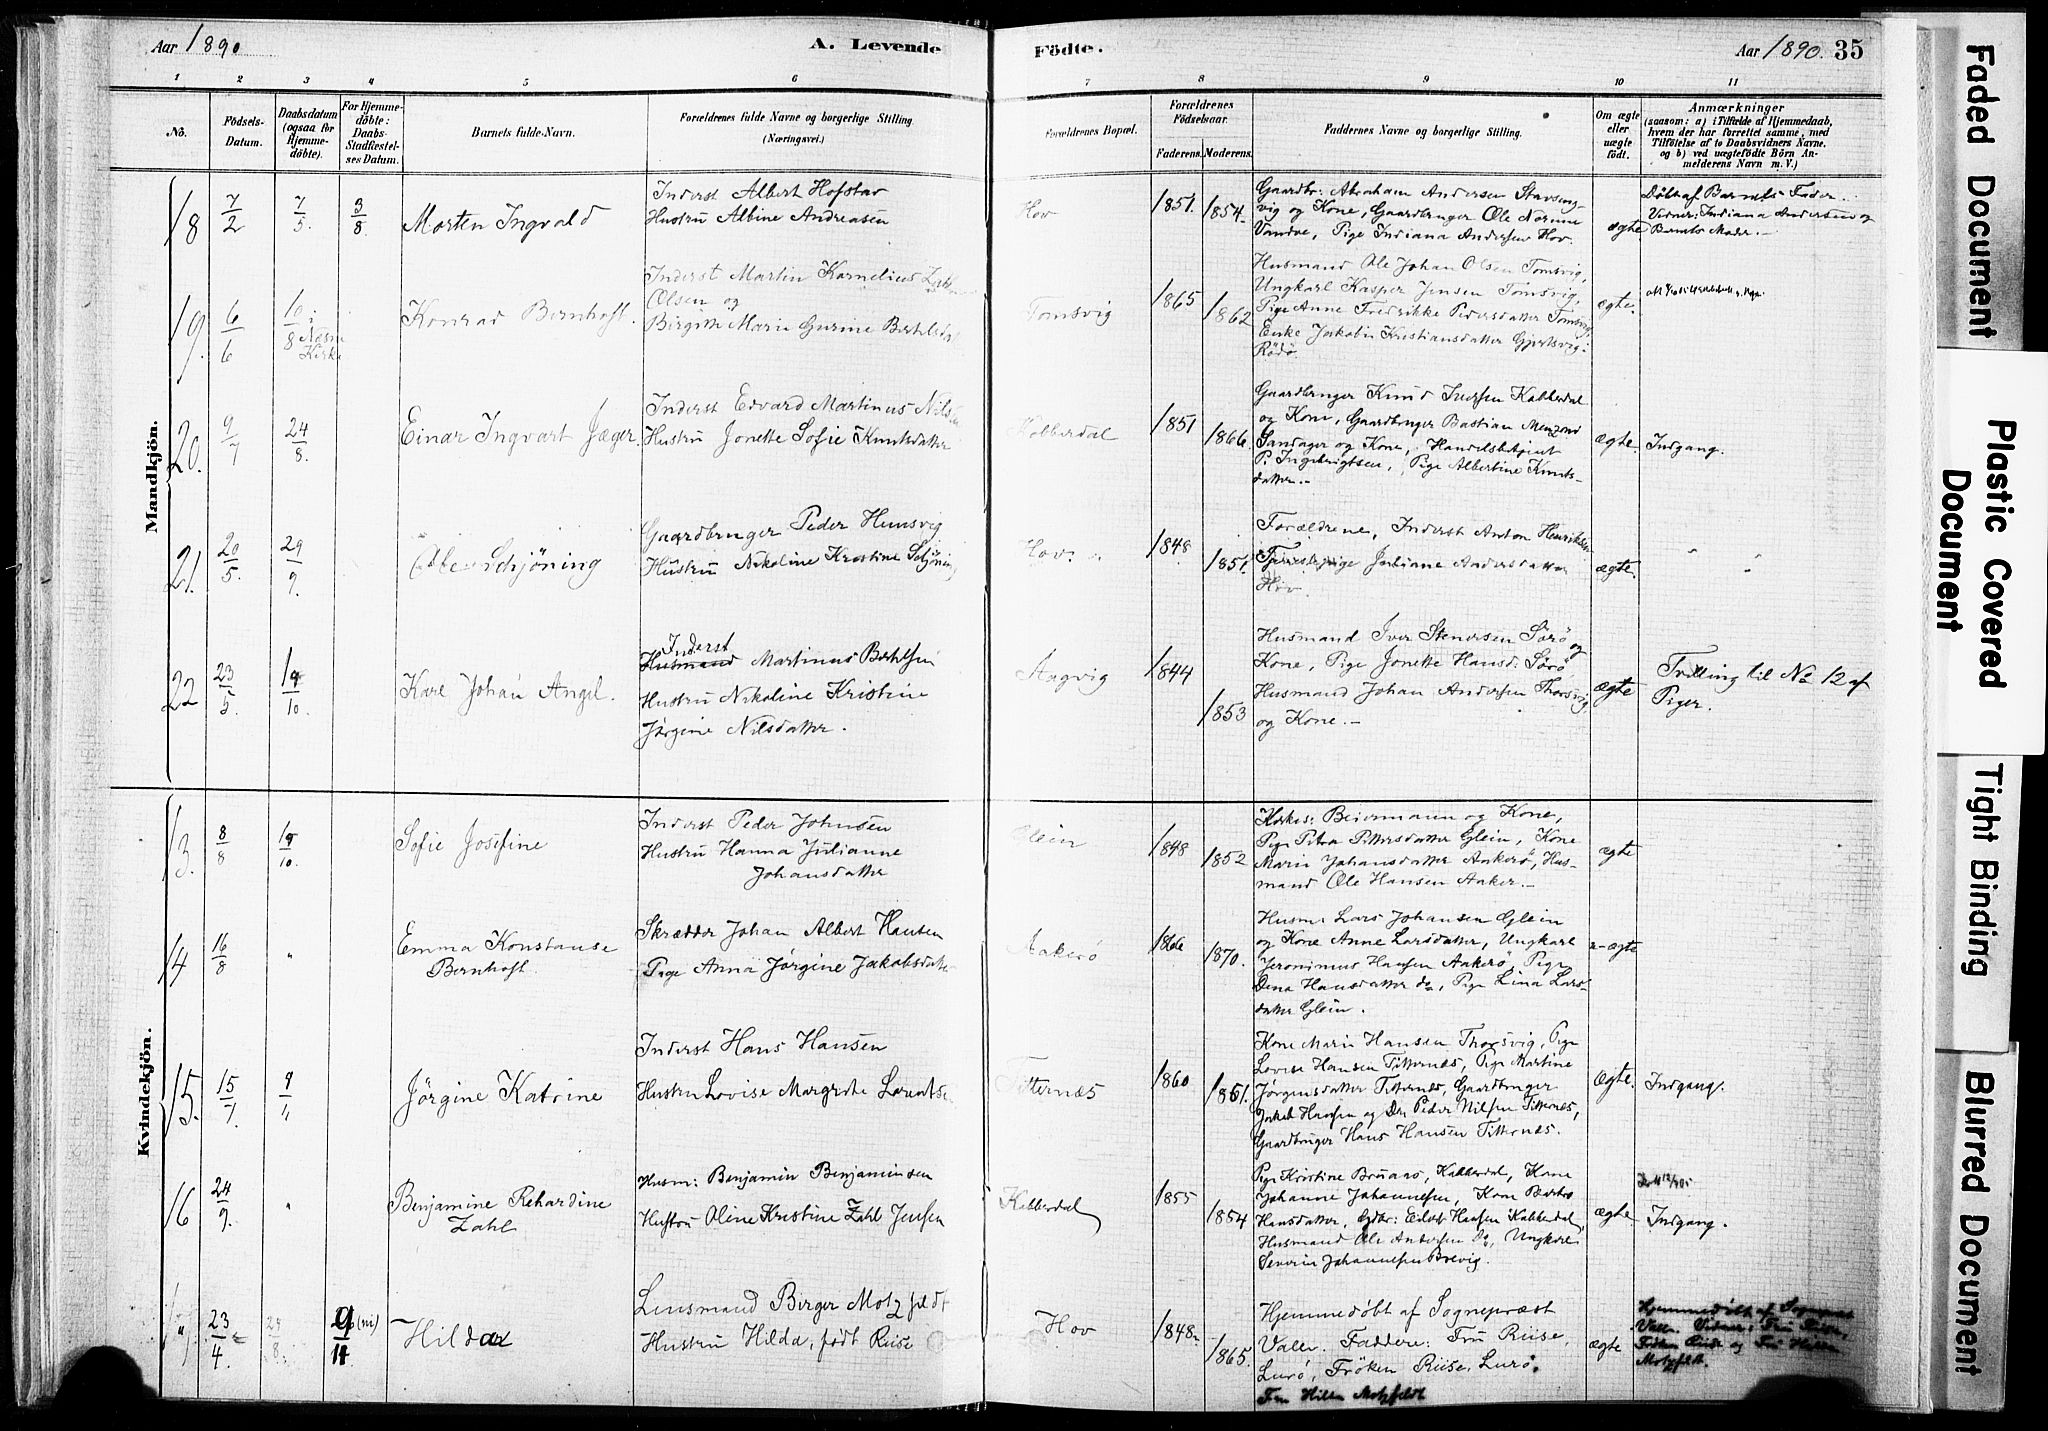 Aar 1890
A. Levende
Födte.
Aar 1890. 35
1 2 3 4 5 6 7 8 9 10 11
No.
Födsels-
Datum.
Daabsdatum
(ogsaa for
Hjemme-
döbte).
For Hjemme-
döbte:
Daabs-
Stadfæstel-
ses Datum.
Barnets fulde Navn.
Forældrenes fulde Navne og borgerlige Stilling
(Næringsvei).
Forældrenes Bopæl.
Forældrenes
Födselsaar.
Faderens. Moderens.
Faddernes Navne og borgerlige Stilling.
Om ægte
eller
uægte
födt.
Anmærkninger
(saasom: a) i Tilfælde af Hjemmedaab,
hvem der har forrettet samme, med
Tilföielse af to Daabsvidners Navne,
og b) ved uægtefödte Börn An-
melderens Navn m. V.)
Mandkjön.
18
7/2
7/5
3/8
Morten Ingvald
Inderst Albert Hofstar
Hustru Albine Andreasen
Hov
1851. 1854.
Gaardbr: Abraham Andersen Stavseng-
vig og Kone, Gaardbruger Ole Normne
Vandve, Pige Indiana Andersen Hov.
ægte
Döbt af Barnets Fader.
Vidner: Indiana Andersen og
Barnets Moder.
19.
6/6
10/8 i
Næsne
Kirke
Konrad Bernhoft.
Inderst Martin Kornelius
Olsen og
Birgitte Marie Gurine
Tomsvig
1865 1862
Husmand Ole Johan Olsen Tomsvig,
Ungkarl Kasper Jensen Tomsvig,
Pige Anne Fredrikke Pedersdatter Tomsvig,
Enke Jakobin Kristiansdatter Gjertsvig.
Rödö.
ægte.
20.
9/7
24/8
Einar Ingvart Jæger.
Inderst Edvard Martinus
Hustru Jonette Sofie Knutsdatter
Kobberdal
1851 1866.
Gaardbruger Knud Iversen Kobberdal
og Kone, Gaardbruger Bastian Menzoni
Sandager og Kone, Handelsbetjent
P. Ingebrigtsen, Pige Albertine Knuts-
datter.-
ægte.
Indgang.
21.
20/5.
29/9.
Ole Schjöning
Gaardbruger Peder Hemsvig
Hustru Nikoline Kristine
Hov.
1848 1851.
Forældrene, Inderst Anton Henriksen
Tjenestepige Juliane Andersdatter
Hov.
ægte.
" "
22
23/5.
19/10.
Karl Johan Angel.
Inderst
Husmand Martinus Bertelsen
Hustru Nikoline Kristine
Jörgine Nilsdatter.
Aagvig
1844 1853
Husmand Iver Stenersen Sörö og
Kone, Pige Jonette Hansd: Sörö
Husmand Johan Andersen Thorsvig
og Kone.-
ægte
Trilling til No 12 af
Piger.
Kvindekjön.
13.
8/8
19/10.
Sofie Josefine
Inderst Peder Johnsen
Hustru Hanna Julianne
Johansdatter
Glein
1848 1852
Kirkes: Beiermann og Kone,
Pige Petra Pettersdatter Glein, Kone
Marie Johansdatter Aakerö, Hus-
mand Ole Hansen Aaker.-
ægte
14
16/8
"
Emma Konstanse
Bernhoft.
Skrædder Johan Albert Hansen
Pige Anna Jörgine Jakobsdatter
Aakerö
1866 1870.
Husm: Lars Johansen Glein
og Kone Anne Larsdatter, Ungkarl
Jeronimus Hansen Aakerö, Pige
Dena Hansdatter do, Pige Lina Lars-
datter Glein.
u-ægte
15.
15/7.
9/11
Jörgine Katrine
Inderst Hans Hansen
Hustru Lovise Margrete
Titternæs
1860 1861.
Kone Marie Hansen Thorsvig, Pige
Lovise Hansen Titternæs, Pige Martine
Jörgensdatter Titternæs, Gaardbruger
Jakob Hansen og Do Peder Nilsen Titternæs,
Gaardbruger Hans Hansen Titternæs.
Ægte.
Indgang.
16
24/9.
"
Benjamine Rehardine
Zahl
Husm: Benjamin Benjaminsen
Hustru Oline Kristine Zahl Jensen
Kobberdal
1855 1854
Pige Kristine Bruaas, Kobberdal, Kone
Johanne Johannesen, Kone Berthe
Hansdatter, Gdbr: Eilert Hansen Kobberdal,
Husmand Ole Andersen Do, Ungkarl
Severin Johannesen Brevig.
ægte
Indgang.
23/4.
9 (ni)/11
Hilda
Lensmand Birger Motzfeldt
Hustru Hilda, födt Riise
Hov
1848. 1865.
Hjemmedöbt af Sognepræst
Valle. Faddere: Fru Riise,
Lurö, Fröken Riise, Lurö.
Fru Hilda Motzfeldt
ægte
Hjemmedöbt af Sognepræst
Valle. Vidner: Fru Riise,
Fröken Riise og Fru Hilda
Motzfeldt.
Faded Document
Plastic Covered
Document
Tight Binding
Blurred Document